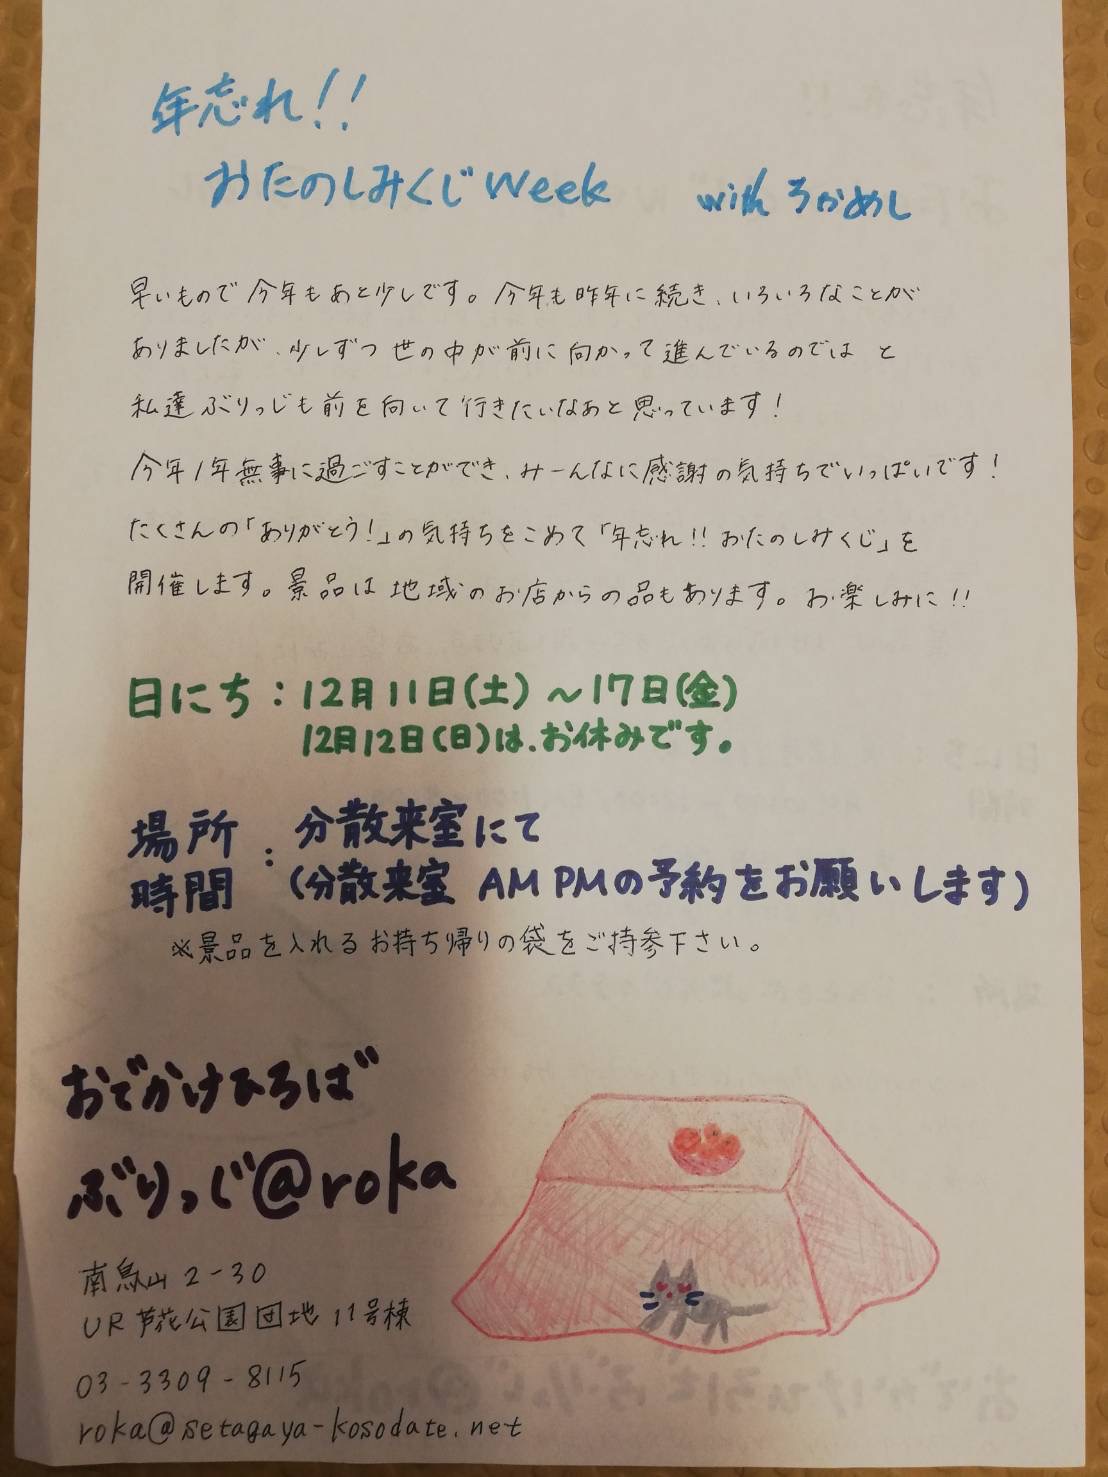 年忘れ!!
おたのしみくじWeek with ろかめし
早いもので今年もあと少しです。今年も昨年に続き、いろいろなことが
ありましたが、少しずつ世の中が前に向かって進んでいるのでは と
私達ぶりっじも前を向いて行きたいなあと思っています!
今年1年無事に過ごすことができ、みーんなに感謝の気持ちでいっぱいです!
たくさんの「ありがとう!」の気持ちをこめて「年忘れ!!おたのしみくじ」を
開催します。景品は地域のお店からの品もあります。お楽しみに!!
日にち:12月11日(土)~17日(金)
12月12日(日)は、お休みです。
場所
時間
: 分散来室にて
(分散来室 AM PMの予約をお願いします)
※景品を入れるお持ち帰りの袋をご持参下さい。
おでかけひろば
ぶりっじ@roka
南烏山2-30
UR芦花公園団地11号棟
03-3309-8115
roka@setagaya-kosodate.net